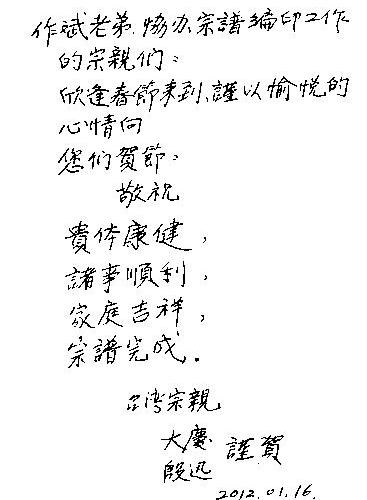 作斌老弟.協办宗譜编印工作
的宗親们：
欣逢春節来到、謹以愉悦的
心情向
您们贺節。
敬祝
貴体康健，
諸事順利，
家庭吉祥，
宗譜完成。
台湾宗親
大慶
殷迅 謹賀
2012.01.16.